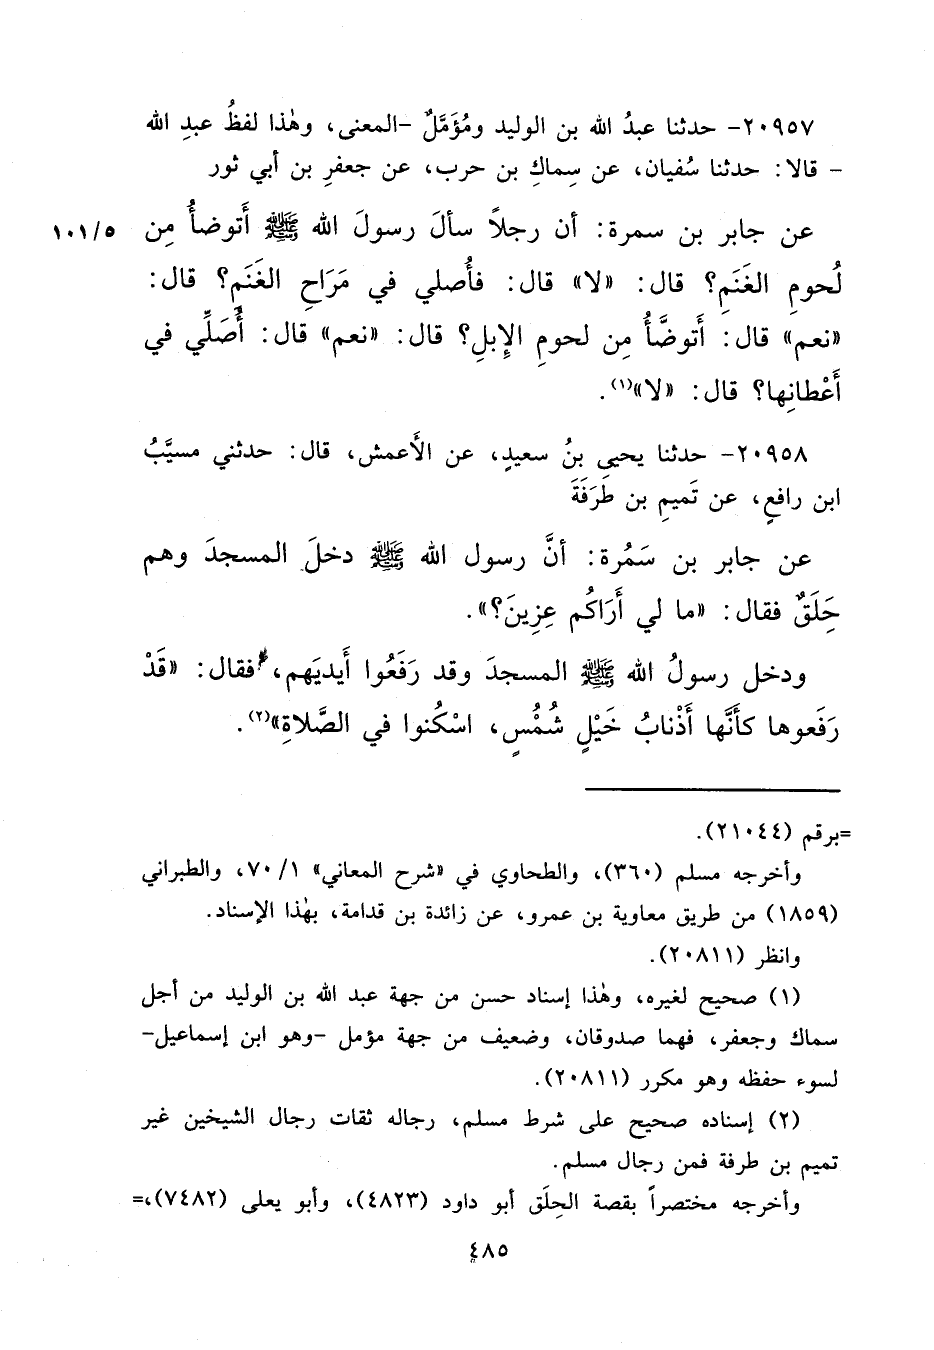 ٢٠٩٥٧- حدثنا عبدُ الله بن الوليد ومُؤَمَّلٌ -المعنى، وهٰذا لفظُ عبدِ الله
- قالا: حدثنا سُفيان، عن سِماكِ بن حرب، عن جعفرِ بن أبي ثور
عن جابر بن سمرة: أن رجلاً سألَ رسولَ الله ﷺ أَتوضأُ مِن
١٠١/٥
لُحومِ الغَنَمِ؟ قال: «لا» قال: فأُصلي في مَرَاحِ الغَنَمِ؟ قال:
«نعم» قال: أَتوضَّأُ مِن لحومِ الإِبلِ؟ قال: «نعم» قال: أُصَلِّي في
أَعْطانِها؟ قال: «لا»(١).
٢٠٩٥٨- حدثنا يحيى بنُ سعيدٍ، عن الأَعمش، قال: حدثني مسيَّبُ
ابن رافعٍ، عن تَميمِ بن طَرَفَةَ
عن جابر بن سَمُرة: أنَّ رسول الله ﷺ دخلَ المسجدَ وهم
حِلَقٌ فقال: «ما لي أَرَاكُم عِزِينَ؟».
ودخل رسولُ الله ﷺ المسجدَ وقد رَفَعُوا أَيديَهم، فقال: «قَدْ
رَفَعوها كأَنَّها أَذْنابُ خَيْلٍ شُمُسٍ، اسْكُنوا في الصَّلاةِ»(٢).
=برقم (٢١٠٤٤).
وأخرجه مسلم (٣٦٠)، والطحاوي في «شرح المعاني» ٧٠/١، والطبراني
(١٨٥٩) من طريق معاوية بن عمرو، عن زائدة بن قدامة، بهٰذا الإسناد.
وانظر (٢٠٨١١).
(١) صحيح لغيره، وهٰذا إسناد حسن من جهة عبد الله بن الوليد من أجل
سماك وجعفر، فهما صدوقان، وضعيف من جهة مؤمل -وهو ابن إسماعيل-
لسوء حفظه وهو مكرر (٢٠٨١١).
(٢) إسناده صحيح على شرط مسلم، رجاله ثقات رجال الشيخين غير
تميم بن طرفة فمن رجال مسلم.
وأخرجه مختصراً بقصة الحِلَق أبو داود (٤٨٢٣)، وأبو يعلى (٧٤٨٢)،=
٤٨٥